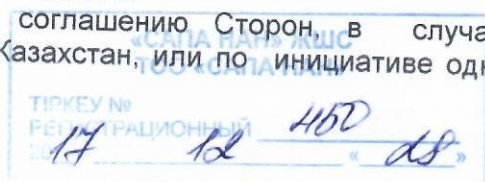 соглашению Сторон, в случа
Казахстан, или по инициативе одн
«САПА НАН» ЖШС
ТОО «САПА НАН»
ТІРКЕУ №
РЕГИСТРАЦИОННЫЙ 450
20 17 12 « 28 »